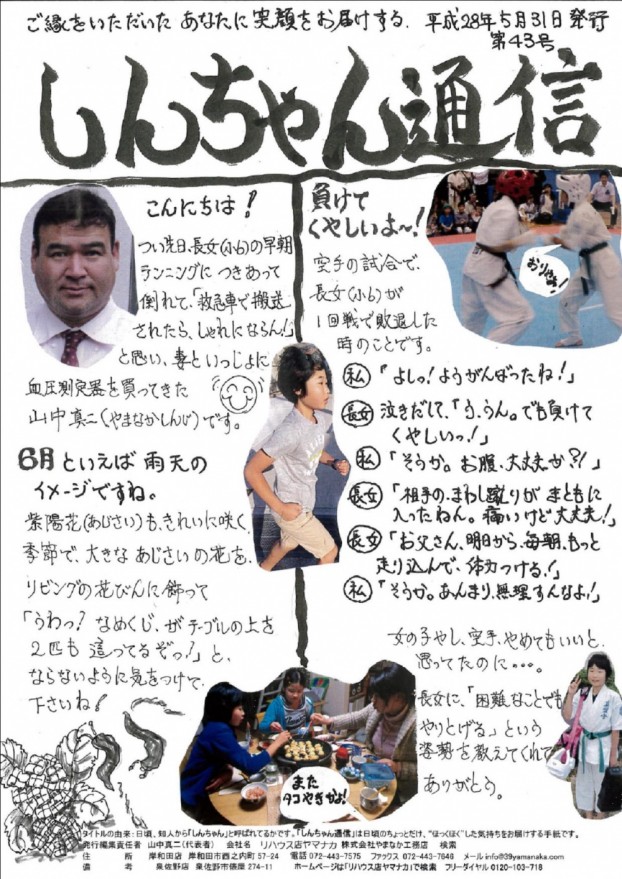 ご縁をいただいた あなたに 笑顔をお届けする. 平成28年5月31日発行
第43号
しんちゃん通信
こんにちは!
つい先日、長女(小6)の早朝
ランニングに つきあって
倒れて、「救急車で搬送
されたら、しゃれにならん!」
と思い、妻といっしょに
血圧測定器を買ってきた
山中真二(やまなかしんじ)です。
6月といえば 雨天の
イメージですね。
紫陽花(あじさい)も、きれいに咲く
季節で、大きな あじさいの花を、
リビングの花びんに飾って
「うわっ?なめくじ、がテーブルの上を
2匹も 這ってるぞっ!」と、
ならないように気をつけて、
下さいね!
負けて
くやしいよ〜!
空手の試合で、
長女(小6)が
1回戦で敗退した
時のことです。
おりゃぁ!
私 「よしっ!ようがんばったね!」
長女 泣きだして、「う、うん。でも負けて
くやしいっ!」
私 「そうか。お腹、大丈夫か?!」
長女 「相手の、まわし蹴りが まともに
入ったねん。痛いけど大丈夫!」
長女 「お父さん、明日から、毎朝、もっと
走り込んで、体力つける!」
私 「そうか。あんまり、無理すんなよ!」
女の子やし、空手、やめてもいいと、
思ってたのに・・・。
長女に、「困難なことでも
やりとげる」という
姿勢を教えてくれて
ありがとう。
また
タコやきかよ!
タイトルの由来:日頃、知人から「しんちゃん」と呼ばれてるからです。「しんちゃん通信」は日頃のちょっとだけ、"ほっくほく"した気持ちをお届けする手紙です。
発行編集責任者 山中真二(代表者) 会社名 リハウス店ヤマナカ 株式会社やまなか工務店 検索
住 所 岸和田店 岸和田市西之内町57-24 電話 072-443-7575 ファックス 072-443-7646 メール info@39yamanaka.com
備 考 泉佐野店 泉佐野市俵屋274-11 ホームページは「リハウス店ヤマナカ」で検索 フリーダイヤル 0120-103-718